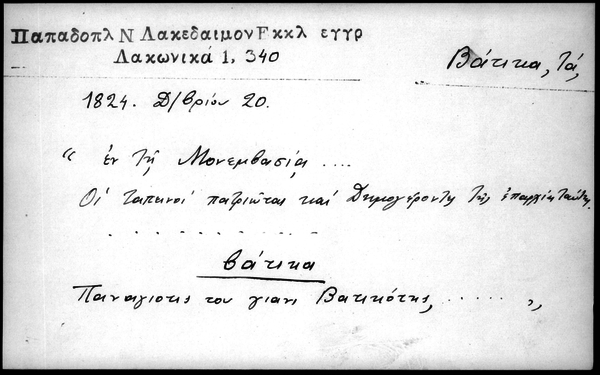 Παπαδοπλ Ν Λακεδαιμον Εκκλ εγγρ
Λακωνικά 1, 340
Βάτικα, Τά,
1824. Δ/βρίου 20.
" ἐν τῇ Μονεμβασίᾳ ....
Οἱ ταπεινοί πατριῶται καί Δημογέροντες τῆς ἐπαρχίας ταύτης.
. . . . . . . . . .
βάτικα
Παναγιοτις του γιανι Βατικότης, ..... "